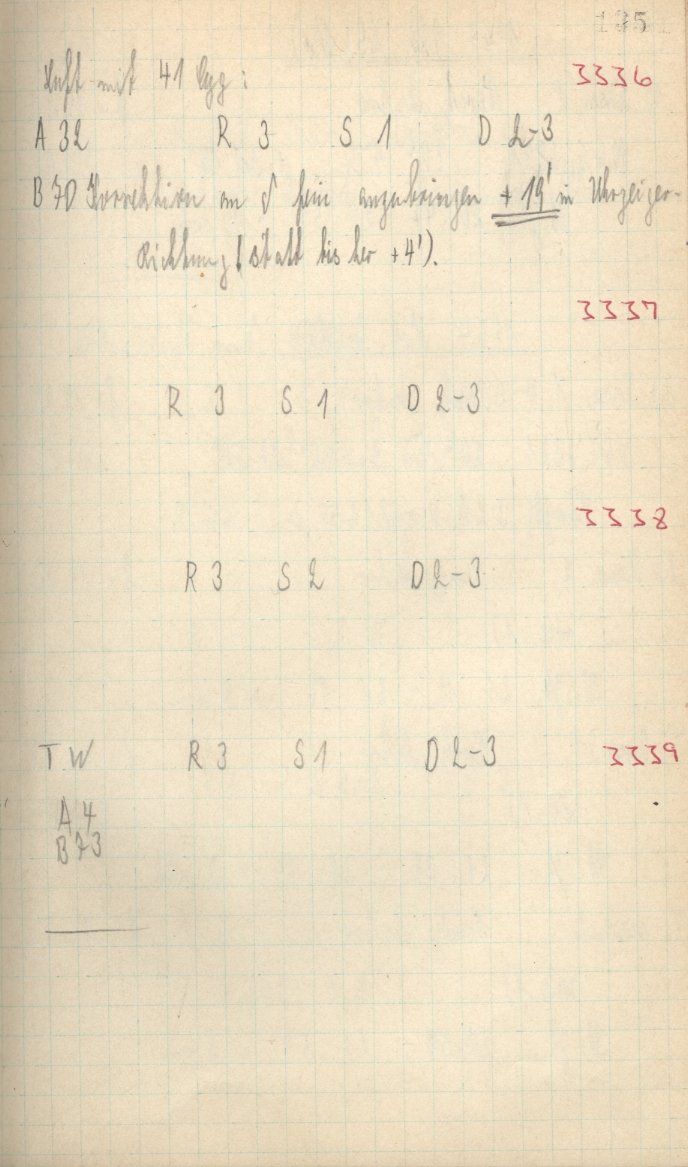 135
Luft mit 41 Cyg: 3336
A 32 R 3 S 1 D 2-3
B 70 Korrektion an δ fein anzubringen + 19' in Uhrzeiger-
Richtung (statt bisher +4').
3337
R 3 S 1 D 2-3
3338
R 3 S 2 D 2-3
T W R 3 S 1 D 2-3 3339
A 4
B 73